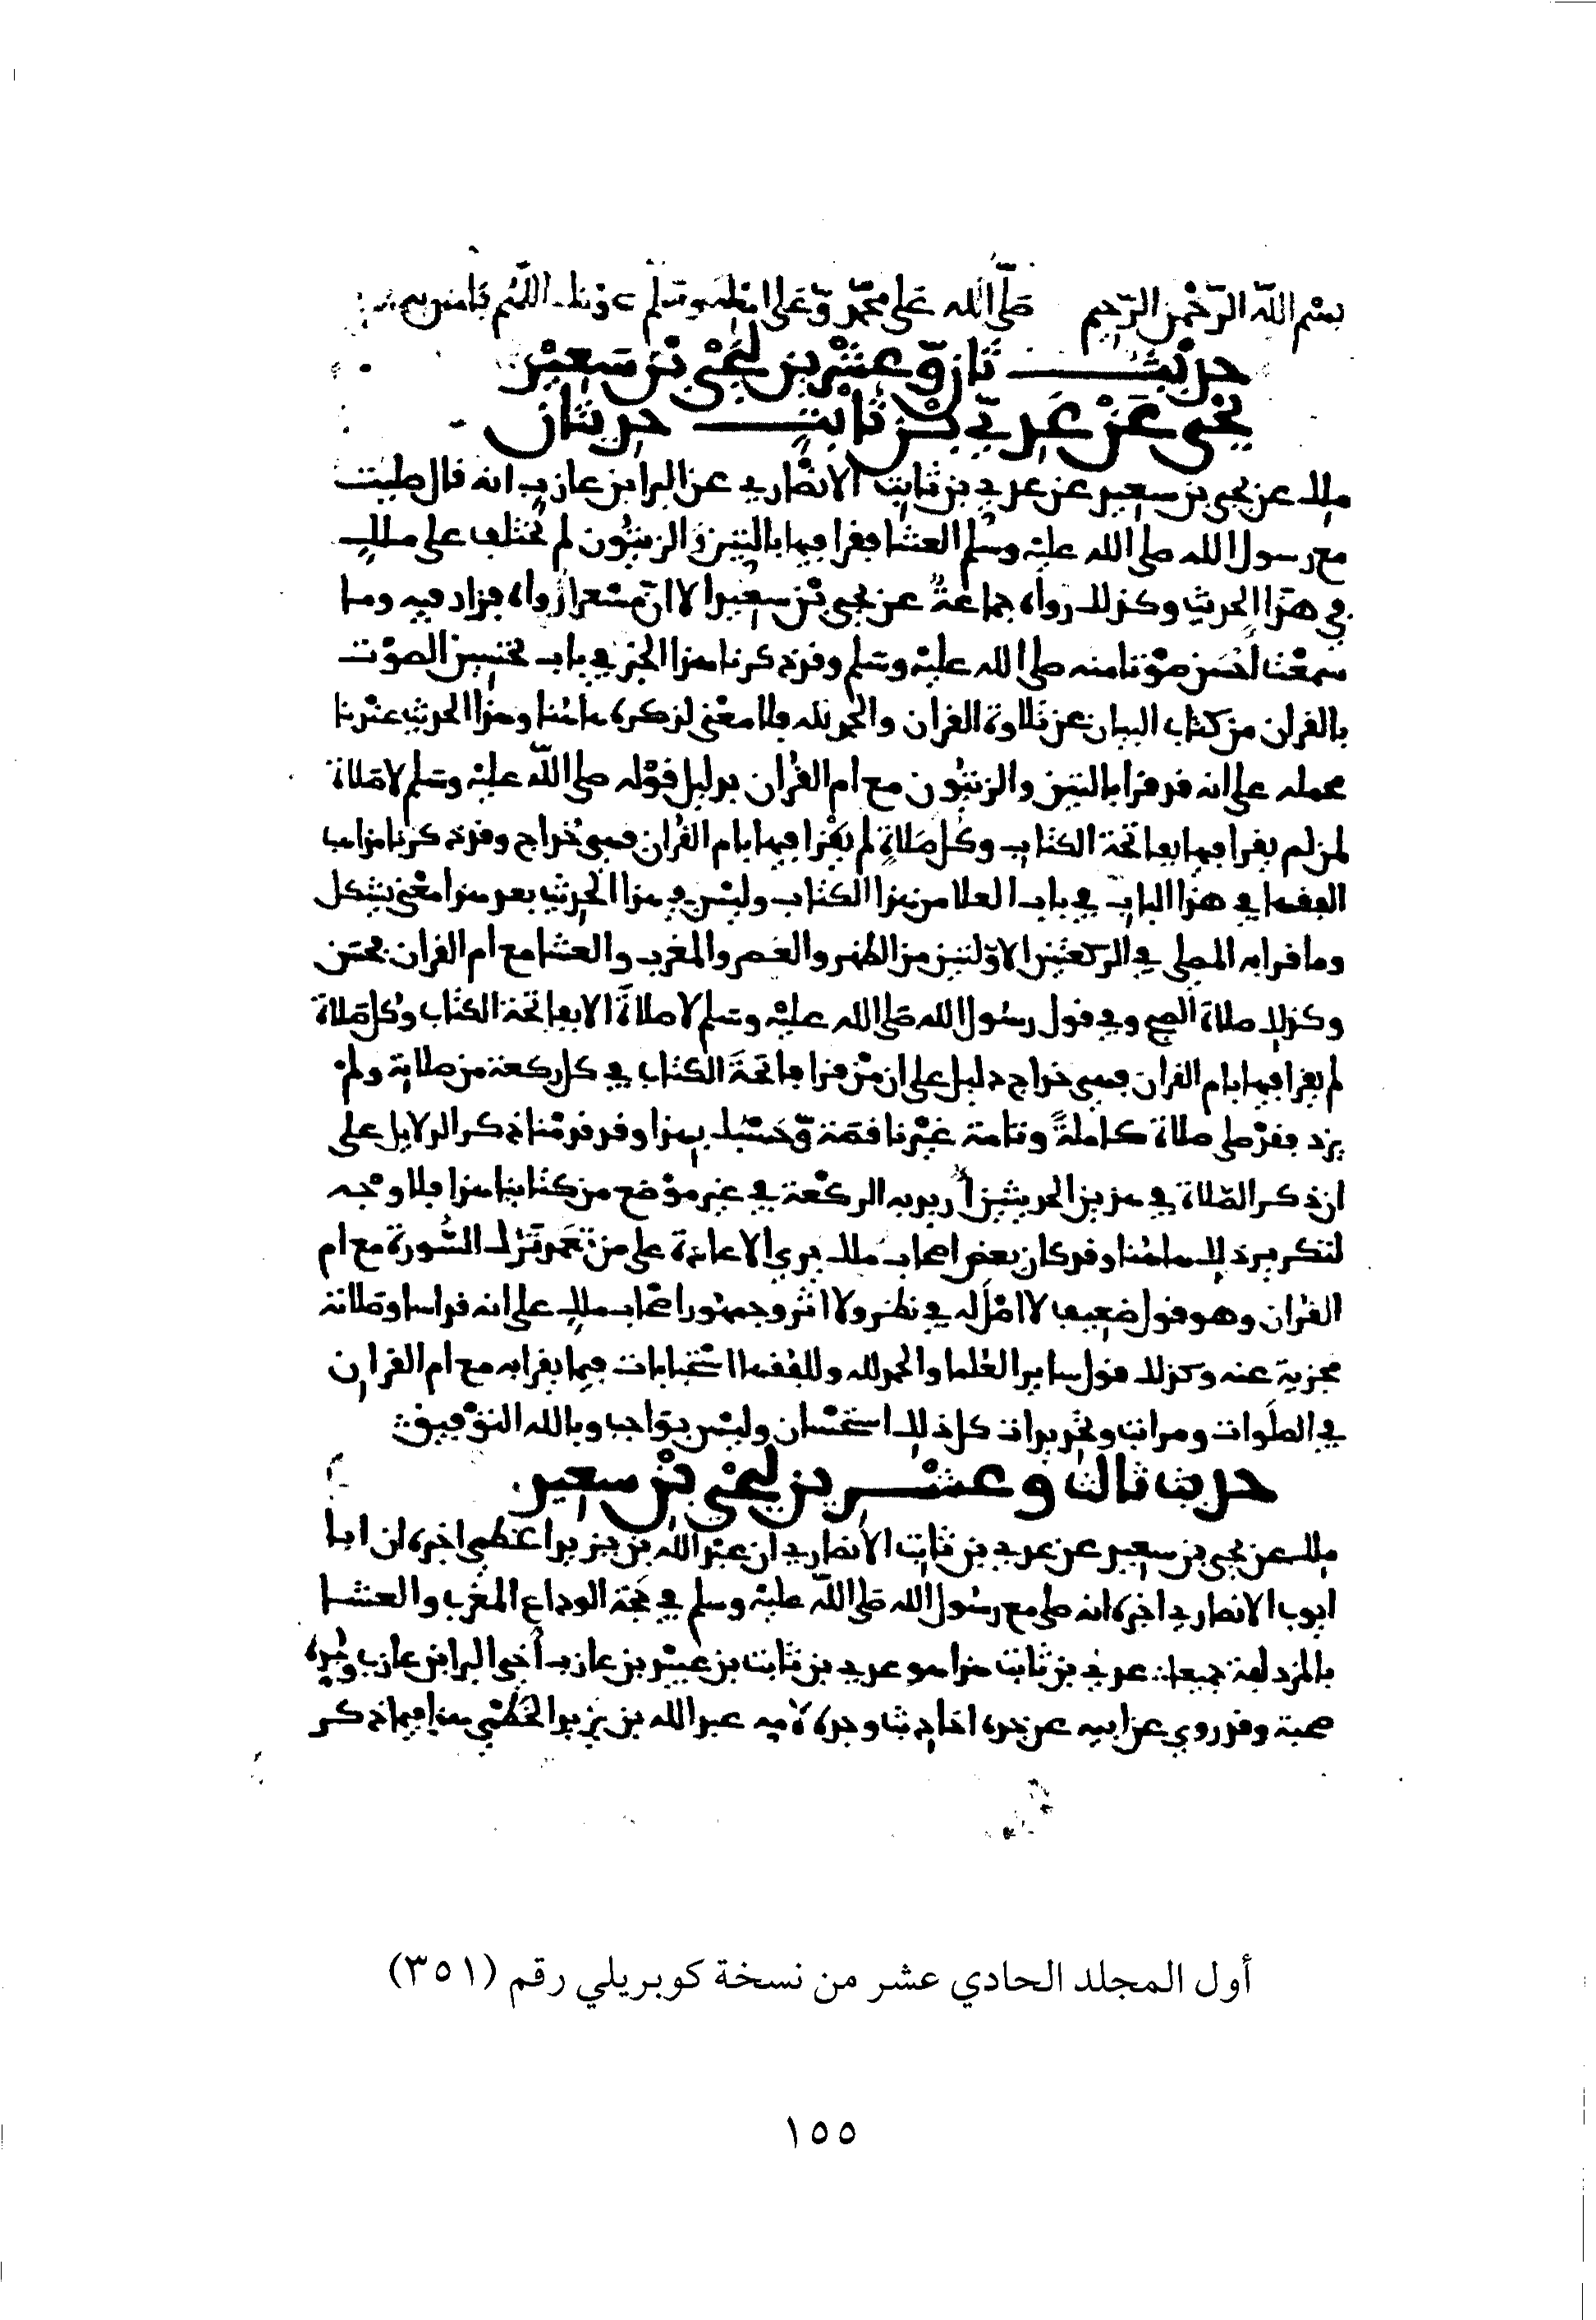 بسم الله الرحمن الرحيم صلى الله على محمد وعلى اهله وسلم عونك اللهم يا من به
حديث ثان وعشرين ليحيى بن سعيد
يحيى عن عدي بن ثابت حديثان
ملك عن يحيى بن سعيد عن عدي بن ثابت الانصاري عن البرا بن عازب انه قال صليت
مع رسول الله صلى الله عليه وسلم العشا فقرا فيها بالتين والزيتون لم تختلف على ملك
في هذا الحديث وكذلك رواه جماعة عن يحيى بن سعيد الا ان مسعرا رواه فزاد فيه وما
سمعت احسن صوتا منه صلى الله عليه وسلم وقد ذكرنا هذا الخبر في باب تحسين الصوت
بالقران من كتاب البيان عن تلاوة القران والحمد لله فلا معنى لذكره هاهنا وهذا الحديث عندنا
محمله على انه قد قرا بالتين والزيتون مع ام القران بدليل قوله صلى الله عليه وسلم لا صلاة
لمن لم يقرا فيها بفاتحة الكتاب وكل صلاة لم يقرا فيها بام القران فهي خداج وقد ذكرنا مذاهب
الفقها في هذا الباب في باب العلا من هذا الكتاب وليس في هذا الحديث بعد هذا معنى يشكل
وما قرا به المصلي في الركعتين الاوليين من الظهر والعصر والمغرب والعشا مع ام القران فحسن
وكذلك صلاة الصبح وفي قول رسول الله صلى الله عليه وسلم لا صلاة الا بفاتحة الكتاب وكل صلاة
لم يقرا فيها بام القران فهي خداج دليل على ان من قرا فاتحة الكتاب في كل ركعة من صلاته ولم
يزد فقد صلى صلاة كاملة وتامة غير ناقصة وحسبك بهذا وقد قدمنا ذكر الدلايل على
ان ذكر الصلاة في هذين الحديثين اريد به الركعة في غير موضع من كتابنا هذا فلا وجه
لتكرير ذلك هاهنا وقد كان بعض اصحاب ملك يرى الاعادة على من تعمد ترك السورة مع ام
القران وهو قول ضعيف لا اصل له في نظر ولا اثر وجمهور اصحاب ملك على انه قد اسا وصلاته
مجزية عنه وكذلك قول ساير العلما والحمد لله وللفقها استحبابات فيما يقرا به مع ام القران
في الصلوات ومراتب وتحديدات كل ذلك استحسان وليس بواجب وبالله التوفيق
حديث ثالث وعشرين ليحيى بن سعيد
ملك عن يحيى بن سعيد عن عدي بن ثابت الانصاري ان عبد الله بن يزيد الخطمي اخبره ان ابا
ايوب الانصاري اخبره انه صلى مع رسول الله صلى الله عليه وسلم في حجة الوداع المغرب والعشا
بالمزدلفة جميعا عدي بن ثابت هذا هو عدي بن ثابت بن عبيد بن عازب اخي البرا بن عازب ولجده
صحبة وقد روي عن ابيه عن جده احاديث وجده لامه عبد الله بن يزيد الخطمي هذا فيما ذكر
أول المجلد الحادي عشر من نسخة كوبريلي رقم (٣٥١)
١٥٥